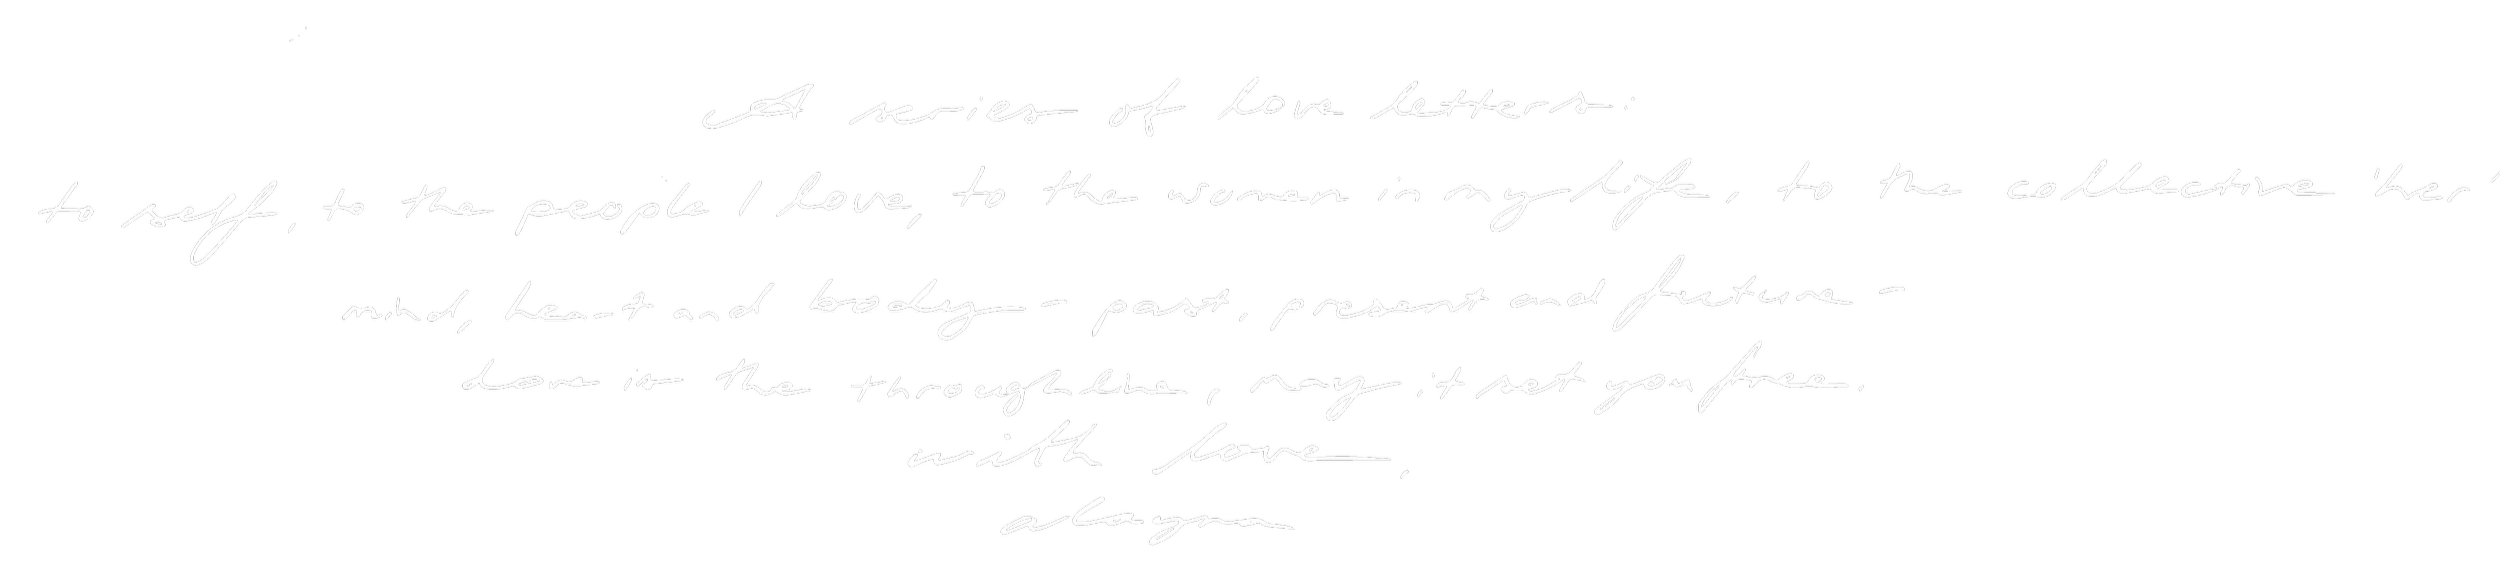 A series of love letters:
to myself, to the people I love, to the woman in my life, to the collective we,
mind, heart and body - past, present and future -
love is the through line, may it set you free.
with love,